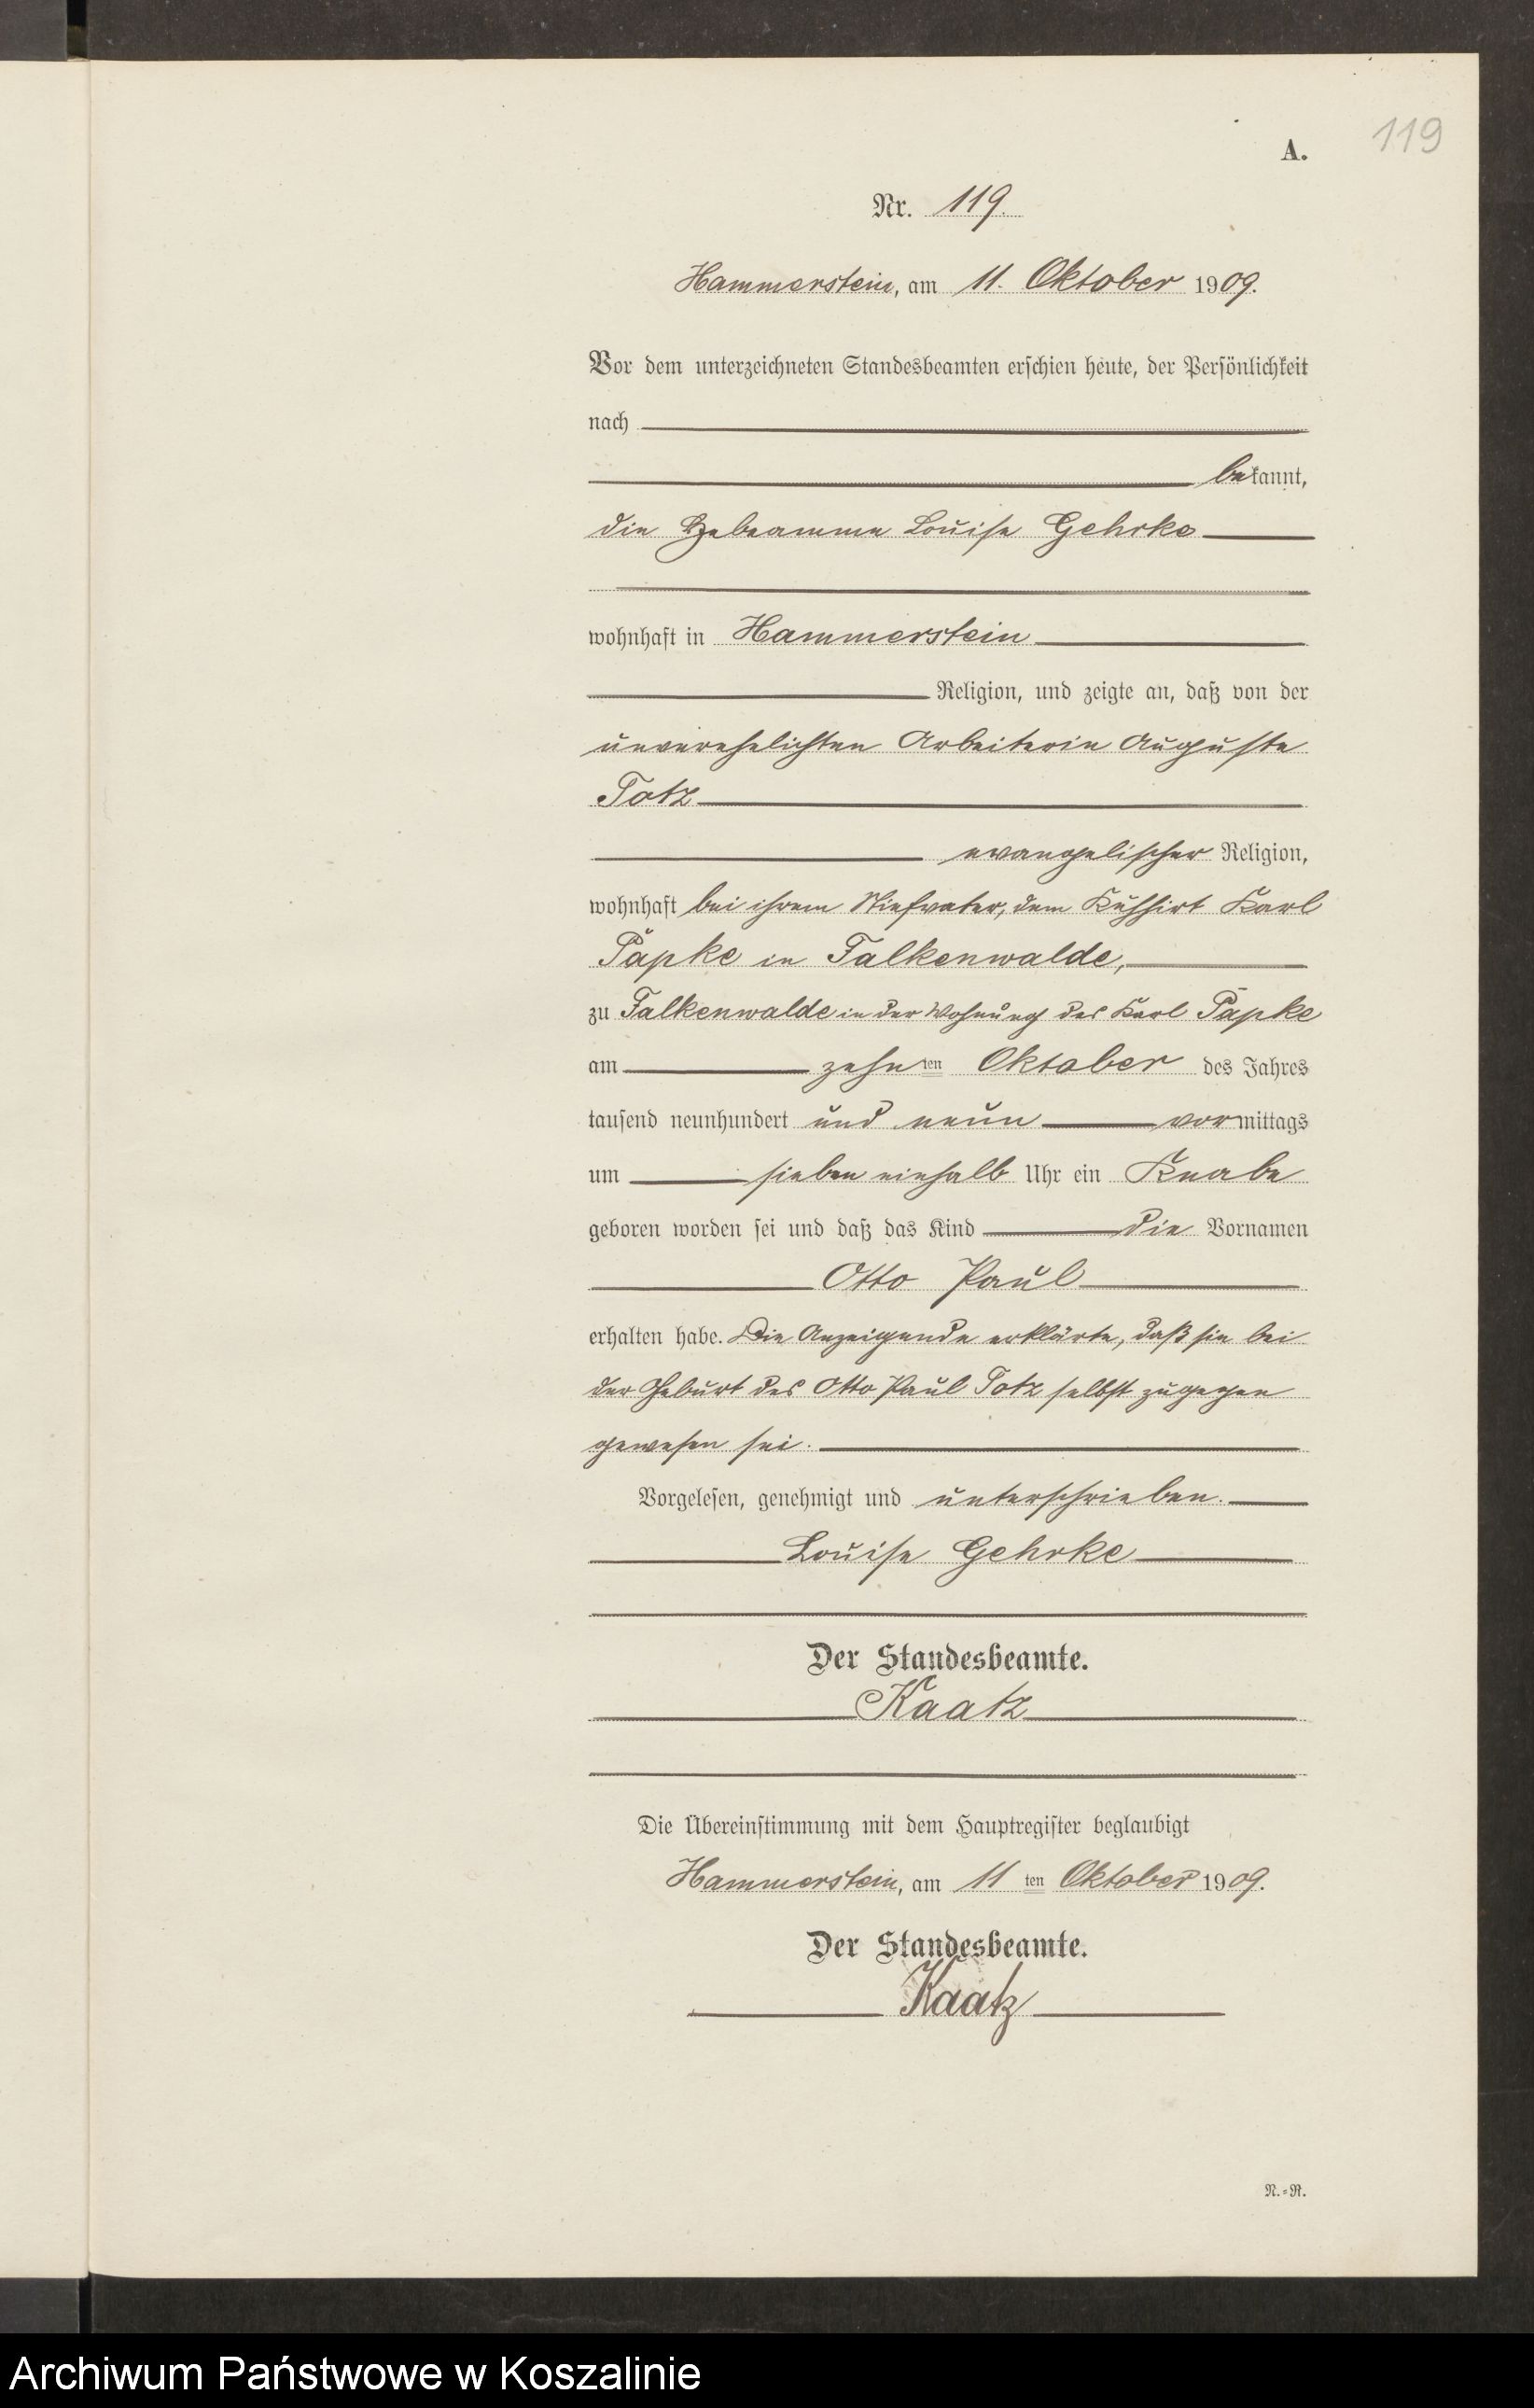 119
A.
Nr. 119.
Hammerstein, am 11. Oktober 1909.
Vor dem unterzeichneten Standesbeamten erschien heute, der Persönlichkeit
nach
bekannt,
die Hebeamme Louise Gehrke
wohnhaft in Hammerstein
Religion, und zeigte an, daß von der
unverehelichten Arbeiterin Auguste
Totz
evangelischer Religion,
wohnhaft bei ihrem Stiefvater, dem Kuhhirt Karl
Päpke in Falkenwalde,
zu Falkenwalde in der Wohnung des Karl Päpke
am zehnten Oktober des Jahres
tausend neunhundert und neun vormittags
um sieben einhalb Uhr ein Knabe
geboren worden sei und daß das Kind die Vornamen
Otto Paul
erhalten habe. Die Anzeigende erklärte, daß sie bei
der Geburt des Otto Paul Totz selbst zugegen
gewesen sei.
Vorgelesen, genehmigt und unterschrieben.
Louise Gehrke
Der Standesbeamte.
Kaatz
Die Übereinstimmung mit dem Hauptregister beglaubigt
Hammerstein, am 11ten Oktober 1909.
Der Standesbeamte.
Kaatz
N.=R.
Archiwum Państwowe w Koszalinie